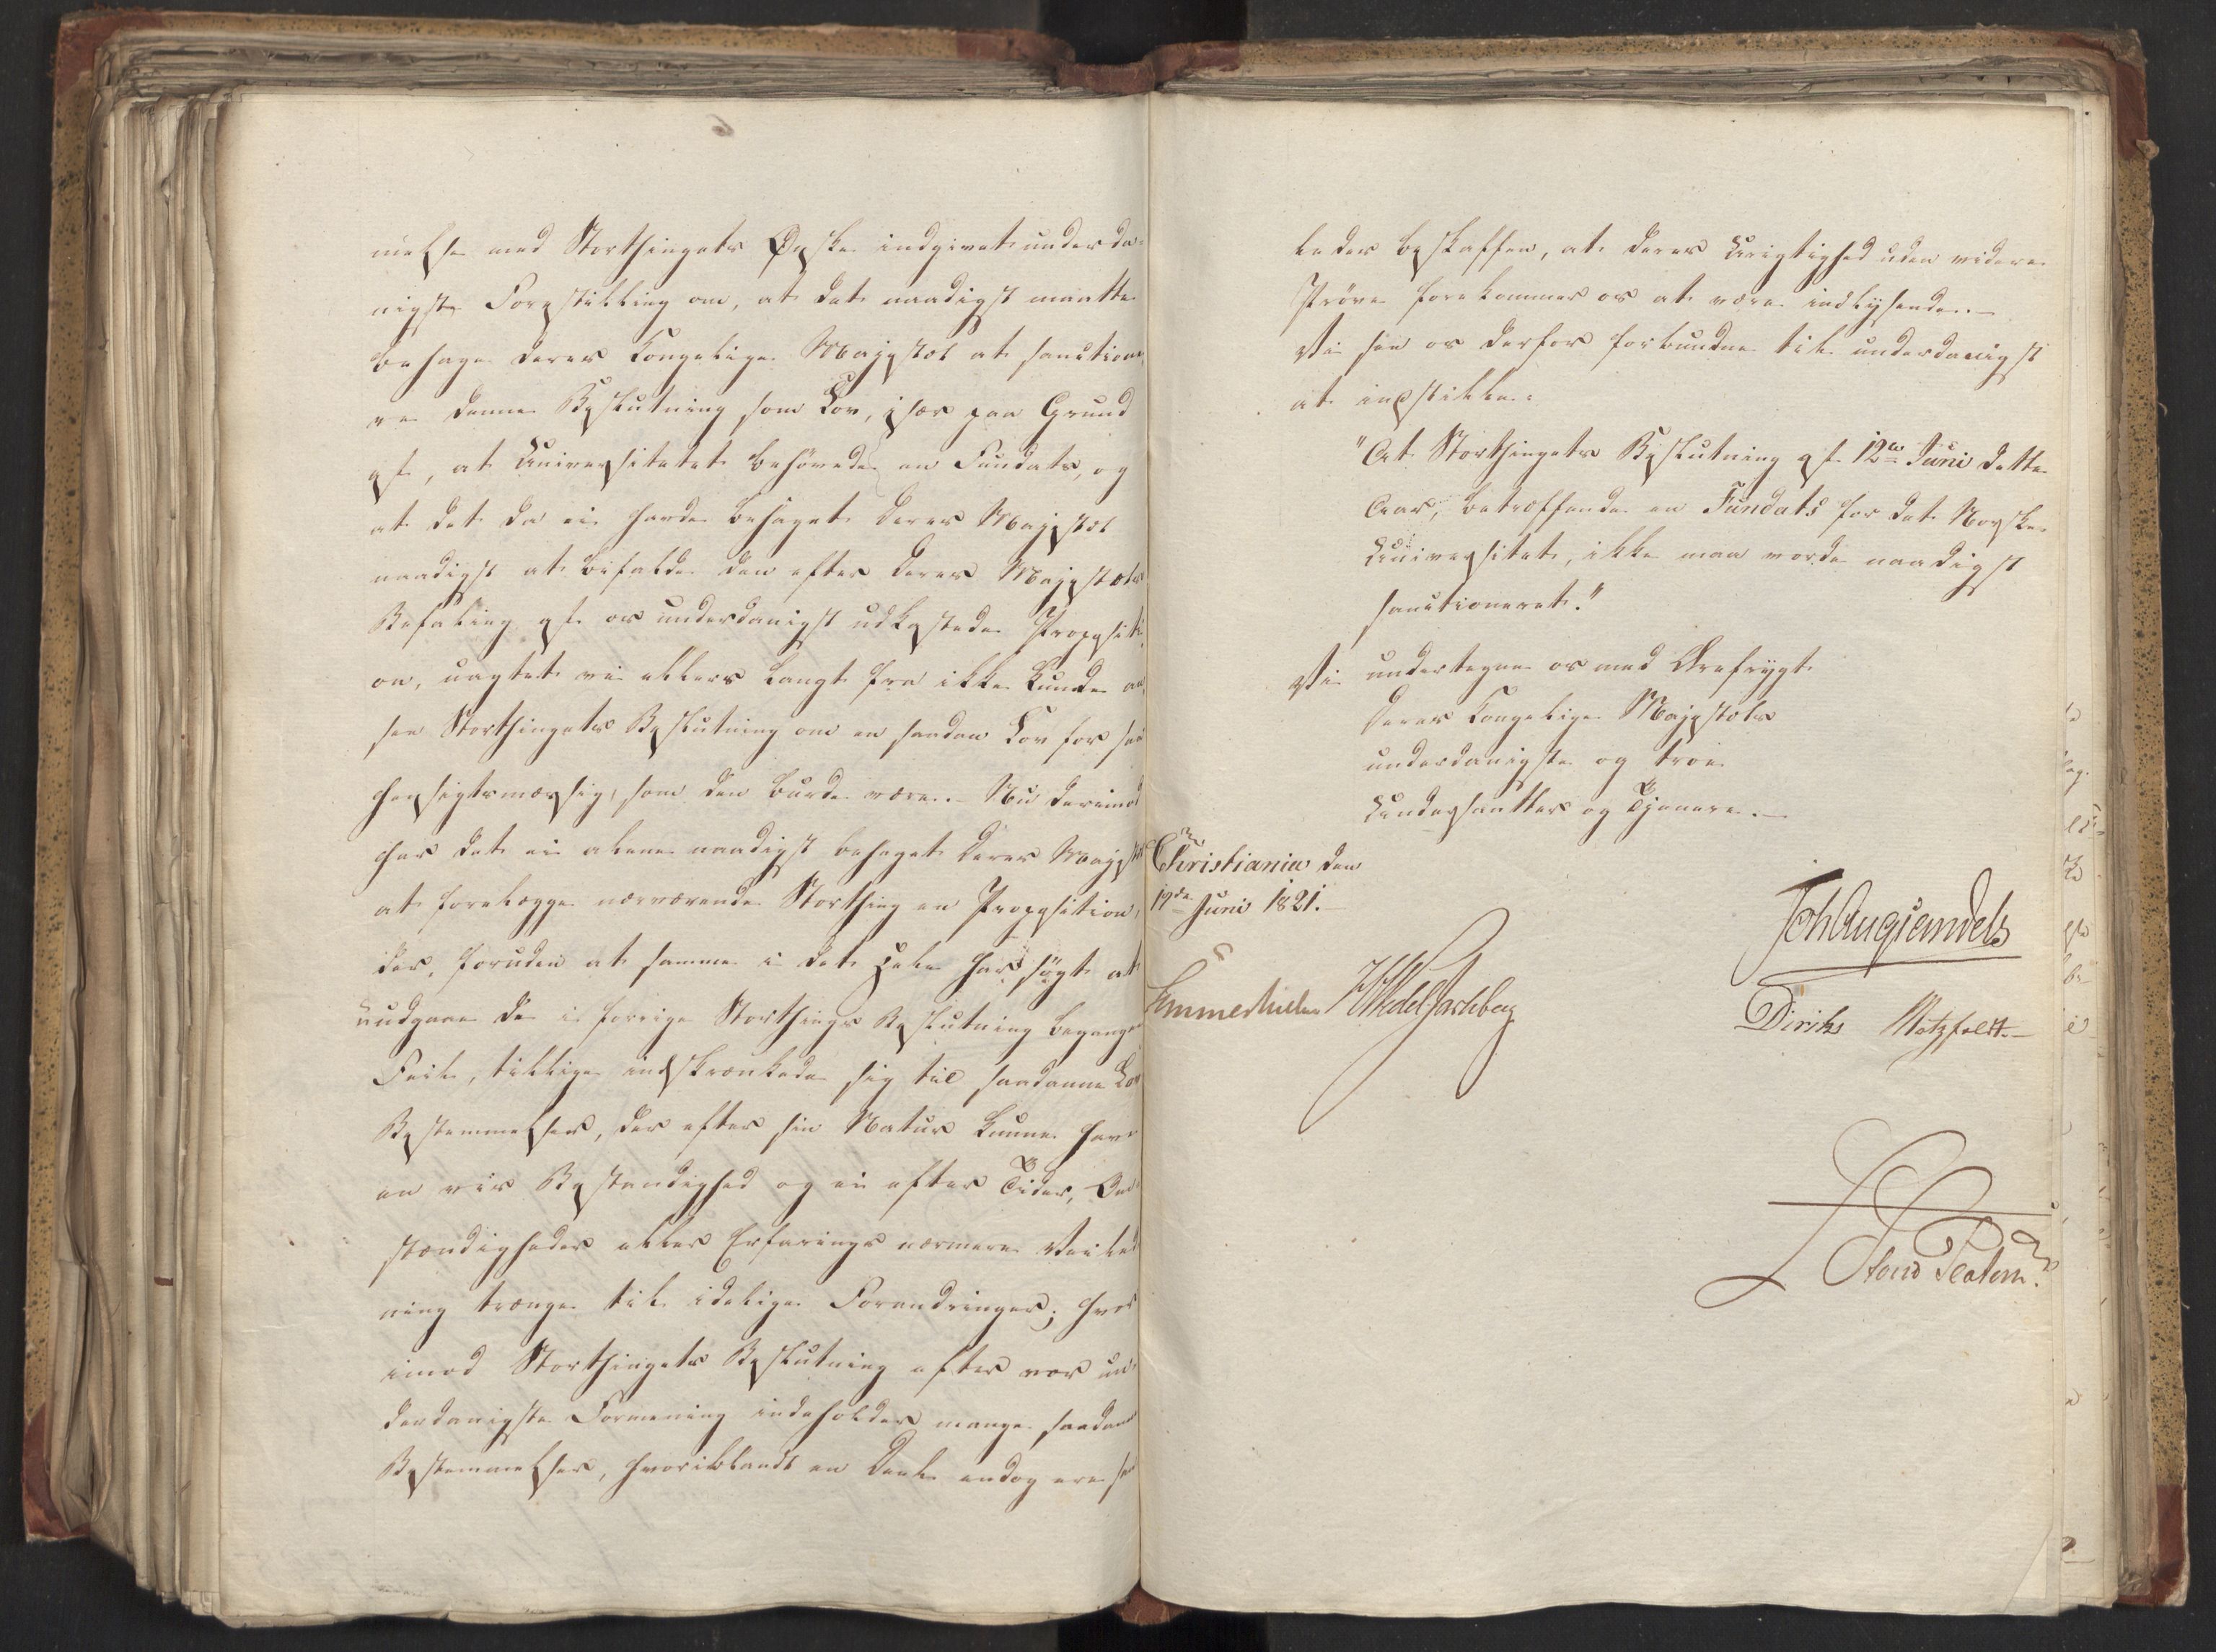 melse med Storthingets Ønske indgivet underda-
nigste Forestilling om, at det naadigst maatte
behage Deres Kongelige Majestæt at sanctione-
re denne Beslutning som Lov, især paa Grund
af, at Universitetet behøvede en Fundats, og
at det da ei havde behaget Deres Majestæt
naadigst at bifalde den efter Deres Majestæts
Befaling af os underdanigst udkastede Propositi-
on, uagtet vi ellers langt fra ikke kunde an-
see Storthingets Beslutning om en saadan Lov for saa
hensigtsmæssig, som den burde være. Nu derimod
har det ei alene naadigst behaget Deres Majestæt
at forelægge nærværende Storthing en Proposition,
der, foruden at samme i det Hele har søgt at
undgaae de i forrige Storthings Beslutning begangne
Feil, tillige indskrænkede sig til saadanne Lov
Bestemmelser, der efter sin Natur kunne have
en vis Bestandighed og ei efter Tider, Om-
stændigheder eller Erfarings nærmere Veiled-
ning trænge til idelige Forandringer; hvor-
imod Storthingets Beslutning efter vor un-
derdanigste Formening indeholder mange saadanne
Bestemmelser, hvoriblandt en Deel endog ere saa-
ledes beskaffen, at deres Urigtighed uden videre
Prøve forekommer os at være indlysende.-
Vi see os derfor forbundne til underdanigst
at indstille:
"At Storthingets Beslutning af 12te Juni dette
Aar, betræffende en Fundats for det Norske
Universitet, ikke maa vorde naadigst
sanctioneret."
Vi undertegne os med Ærefrygt
Deres Kongelige Majestæts
underdanigste og troe
Undersaatter og Tjenere.-
Christiania den
19de Juni 1821.
Joh Aug Sandels
Sommerhielm HWedelJarlsberg
Diriks Motzfeldt.